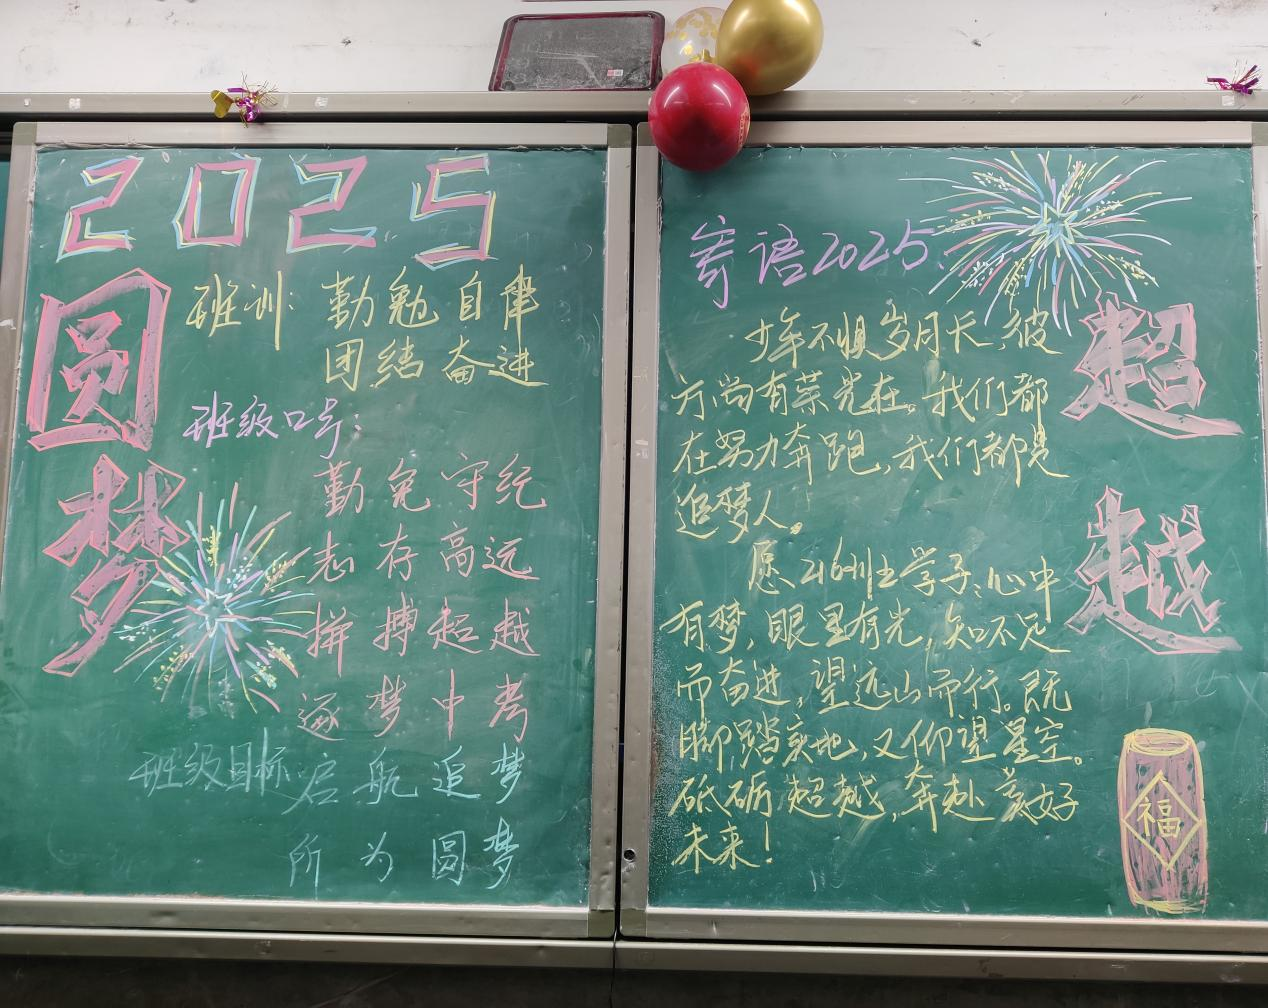 2025
圆梦
班训: 勤勉自律
团结奋进
班级口号:
勤勉守纪
志存高远
拼搏超越
逐梦中考
班级目标 启航追梦
所为圆梦
寄语2025:
少年不惧岁月长,彼
方尚有荣光在。我们都
在努力奔跑,我们都是
追梦人。
愿216班学子:心中
有梦,眼里有光,知不足
而奋进,望远山而行。既
脚踏实地,又仰望星空。
砥砺超越,奔赴美好
未来!
超越
福